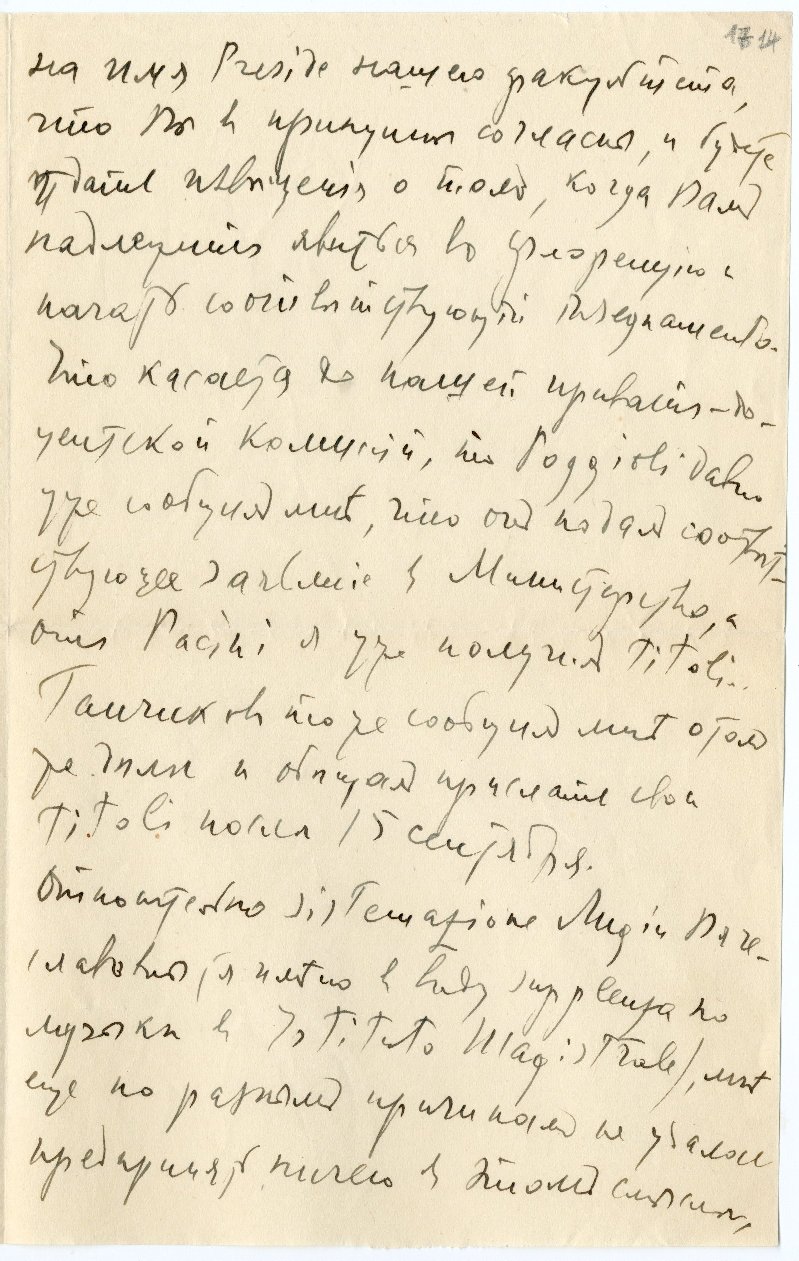 17 14
на имя Preside нашего факультета,
что Вы въ принципѣ согласны, и будете
ждать извѣщенія о томъ, когда Вамъ
надлежитъ явиться во Флоренцію и
начать соотвѣтствующій insegnamento.
Что касается до нашей приватъ-до-
центской комиссіи, то Poggioli давно
уже сообщилъ мнѣ, что онъ подалъ соотвѣт-
ствующее заявленіе въ Министерство, а
отъ Pacini я уже получилъ titoli..
Ганчиковъ тоже сообщилъ мнѣ о томъ
же дѣлѣ и обѣщалъ прислать свои
titoli послѣ 15 сентября.
Относительно sistemazione Лидіи Вяче-
славовны (я имѣю въ виду supplenza по
музыкѣ въ Istituto Magistrale), мнѣ
еще по разнымъ причинамъ не удалось
предпринять ничего въ этомъ смыслѣ,